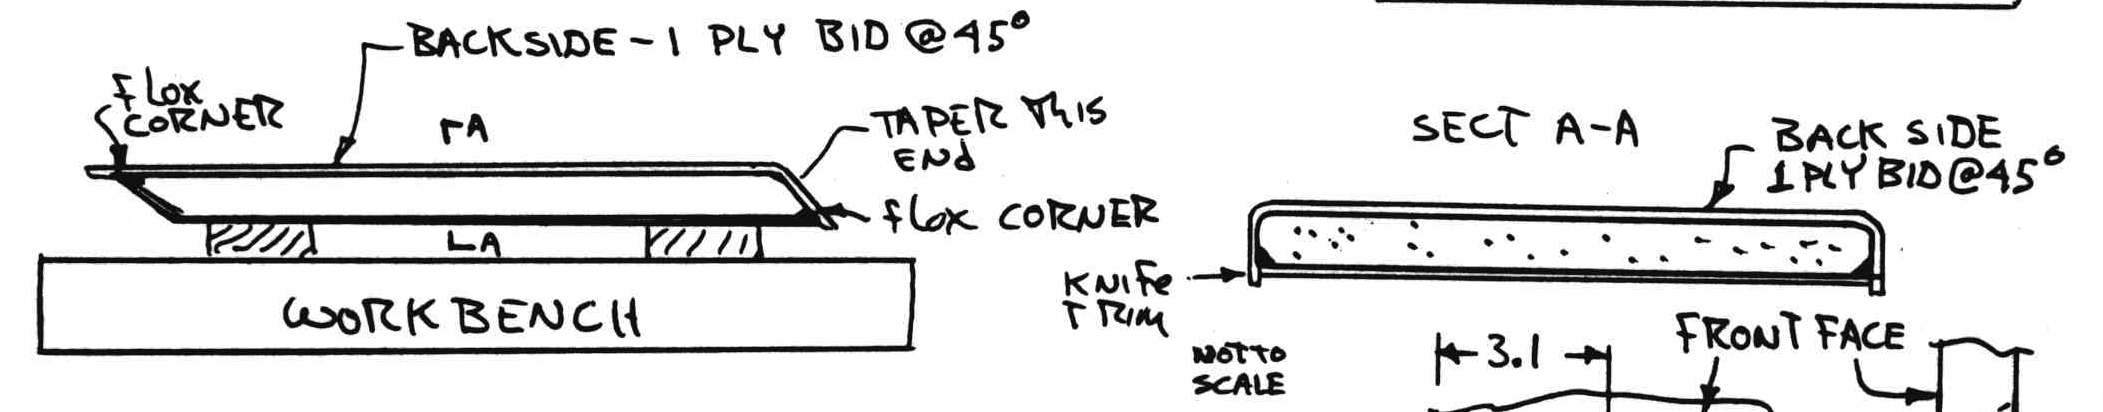 BACKSIDE - 1 PLY BID @ 45°
FLOX
CORNER
ΓA
TAPER THIS
END
FLOX CORNER
LA
WORKBENCH
SECT A-A
BACK SIDE
1 PLY BID @ 45°
KNIFE
TRIM
NOT TO
SCALE
3.1
FRONT FACE